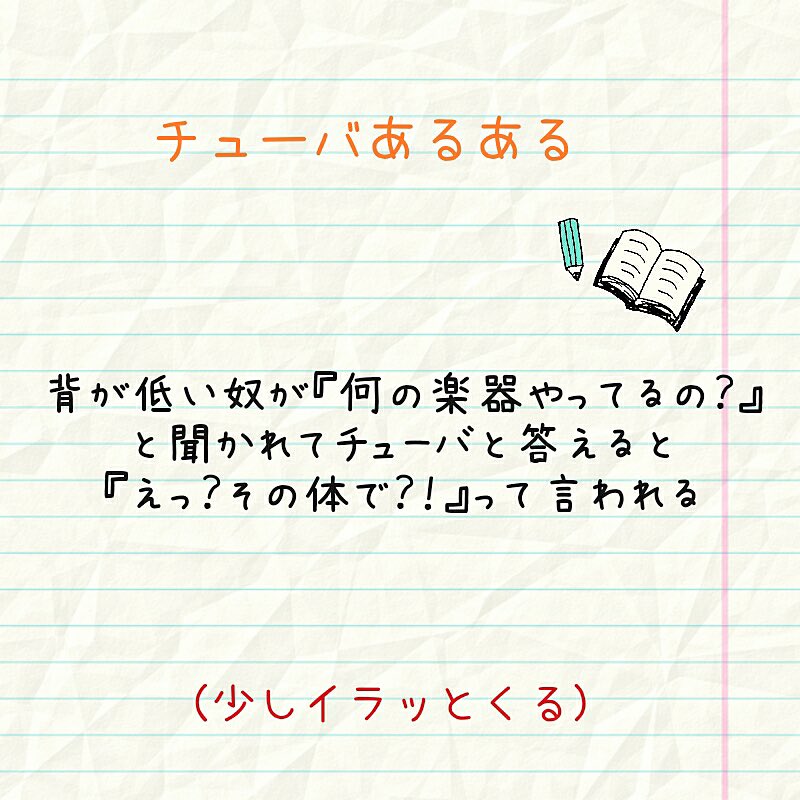 チューバあるある
背が低い奴が『何の楽器やってるの?』
と聞かれてチューバと答えると
『えっ?その体で?!』って言われる
(少しイラッとくる)